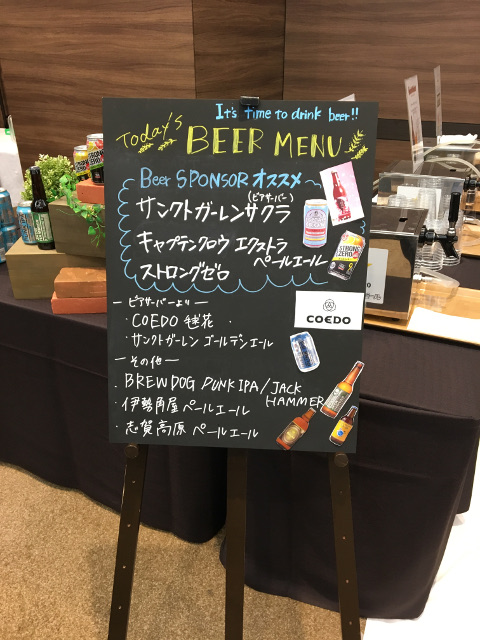 It's time to drink beer!!
Today's
BEER MENU
Beer SPONSOR オススメ
(ビアサーバー)
サンクトガーレンサクラ
キャプテンクロウ エクストラ
ペールエール
ストロングゼロ
STRONG
ZERO
ー ビアサーバーより ー
・COEDO 毬花 ・
・サンクトガーレン ゴールデンエール
COEDO
ー その他 ー
・BREWDOG PUNK IPA / JACK
HAMMER
・伊勢角屋 ペールエール
・志賀高原 ペールエール